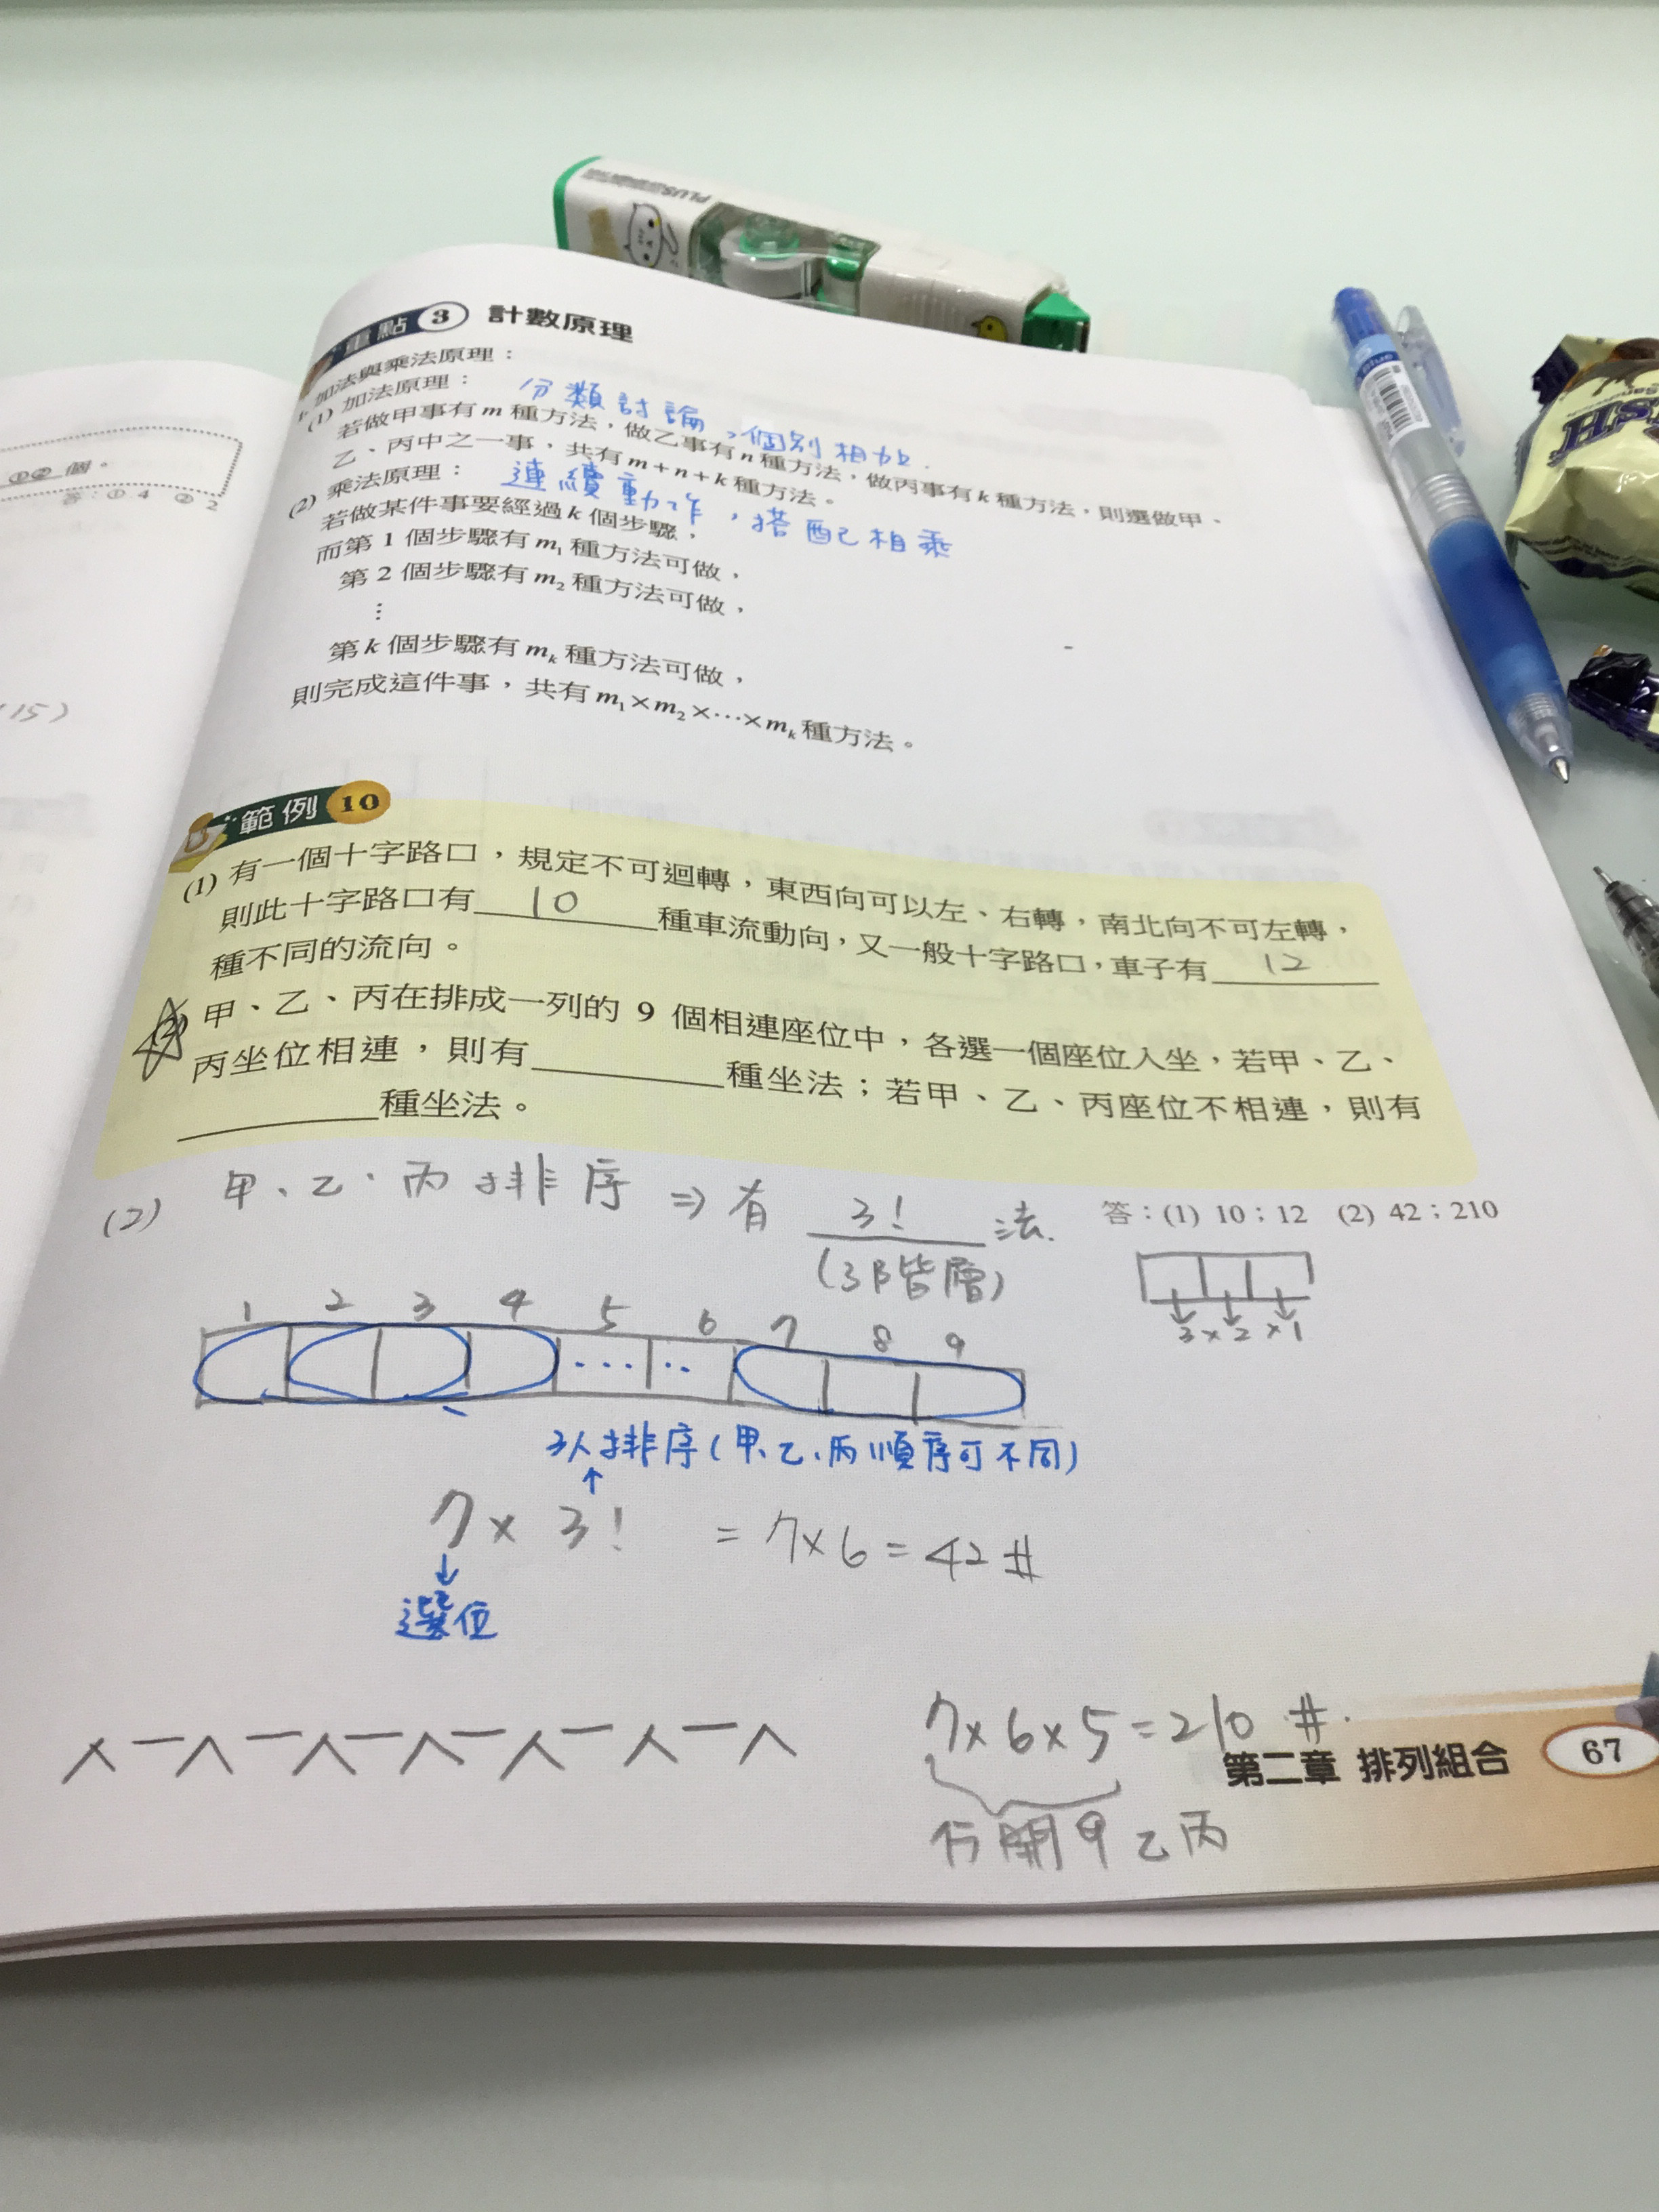 PLUS
Blue
重點 3 計數原理
加法與乘法原理：
(1) 加法原理： 分類討論，個別相加.
若做甲事有 m 種方法，做乙事有 n 種方法，做丙事有 k 種方法，則選做甲、
乙、丙中之一事，共有 m+n+k 種方法。
(2) 乘法原理： 連續動作，搭配相乘
若做某件事要經過 k 個步驟，
而第 1 個步驟有 m₁ 種方法可做，
第 2 個步驟有 m₂ 種方法可做，
⋮
第 k 個步驟有 mₖ 種方法可做，
則完成這件事，共有 m₁×m₂×…×mₖ 種方法。
①② 個。
答：① 4 ② 2
(15)
範例 10
(1) 有一個十字路口，規定不可迴轉，東西向可以左、右轉，南北向不可左轉，
則此十字路口有 10 種車流動向，又一般十字路口，車子有 12
種不同的流向。
(2) 甲、乙、丙在排成一列的 9 個相連座位中，各選一個座位入坐，若甲、乙、
丙坐位相連，則有______種坐法；若甲、乙、丙座位不相連，則有
______種坐法。
答：(1) 10；12 (2) 42；210
(2) 甲、乙、丙排序 ⇒ 有 3! 法.
(3階層)
3×2×1
1 2 3 4 5 6 7 8 9
3人排序(甲、乙、丙順序可不同)
7 × 3! = 7×6 = 42 #
選位
7×6×5=210 #.
乙丙
第二章 排列組合 67